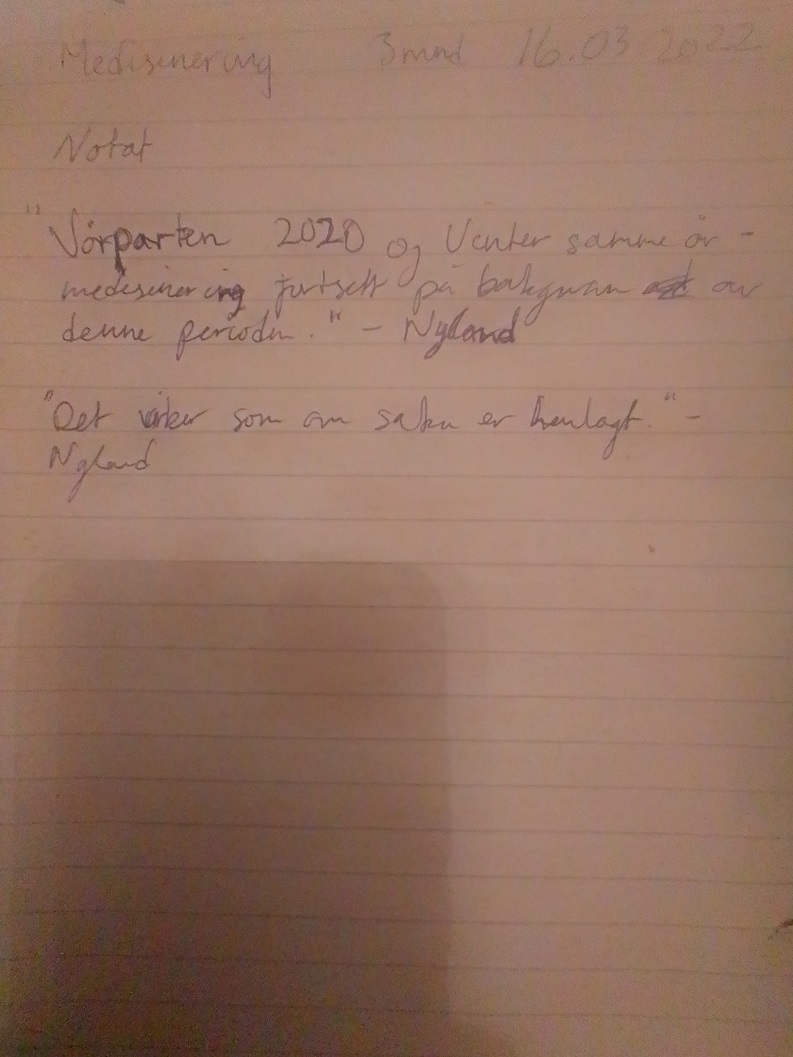 Medisinering 3 mnd 16.03 2022
Notat
"Vårparten 2020 og Vinter samme år -
medisinering fortsett på bakgrunn av
denne perioden." - Nyland
"Det virker som om saken er henlagt." -
Nyland